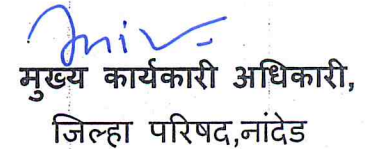 मुख्य कार्यकारी अधिकारी,
जिल्हा परिषद,नांदेड